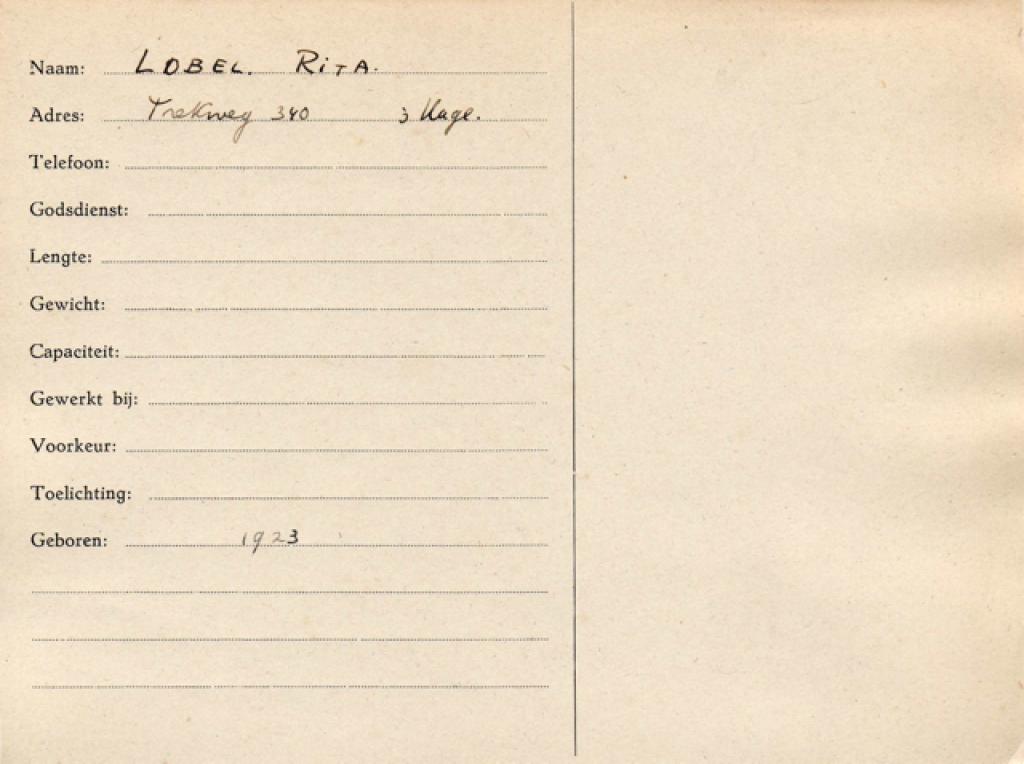 Naam: LOBEL. RITA.
Adres: Trekweg 340 's Hage.
Telefoon:
Godsdienst:
Lengte:
Gewicht:
Capaciteit:
Gewerkt bij:
Voorkeur:
Toelichting:
Geboren: 1923